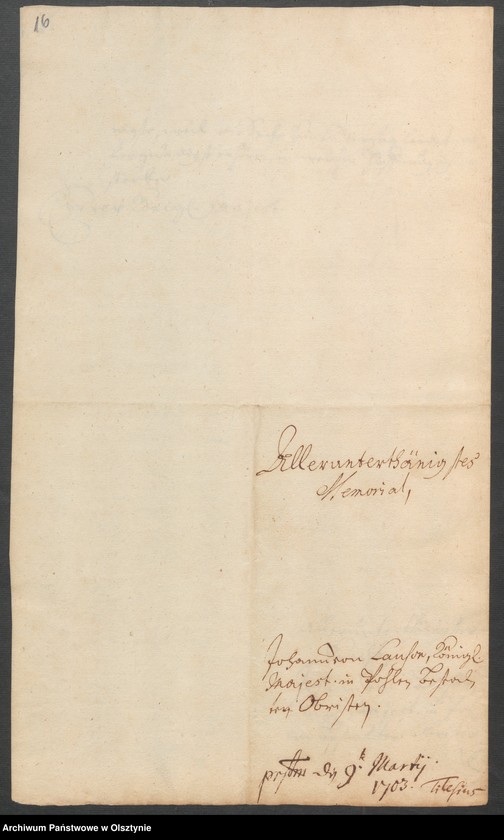 16
Allerunterthänigstes
Memorial,
Johann von Lauson, Königl.
Majest. in Pohlen Bestal
ten Obristen.
den 9t Martij.
1703.
Archiwum Państwowe w Olsztynie